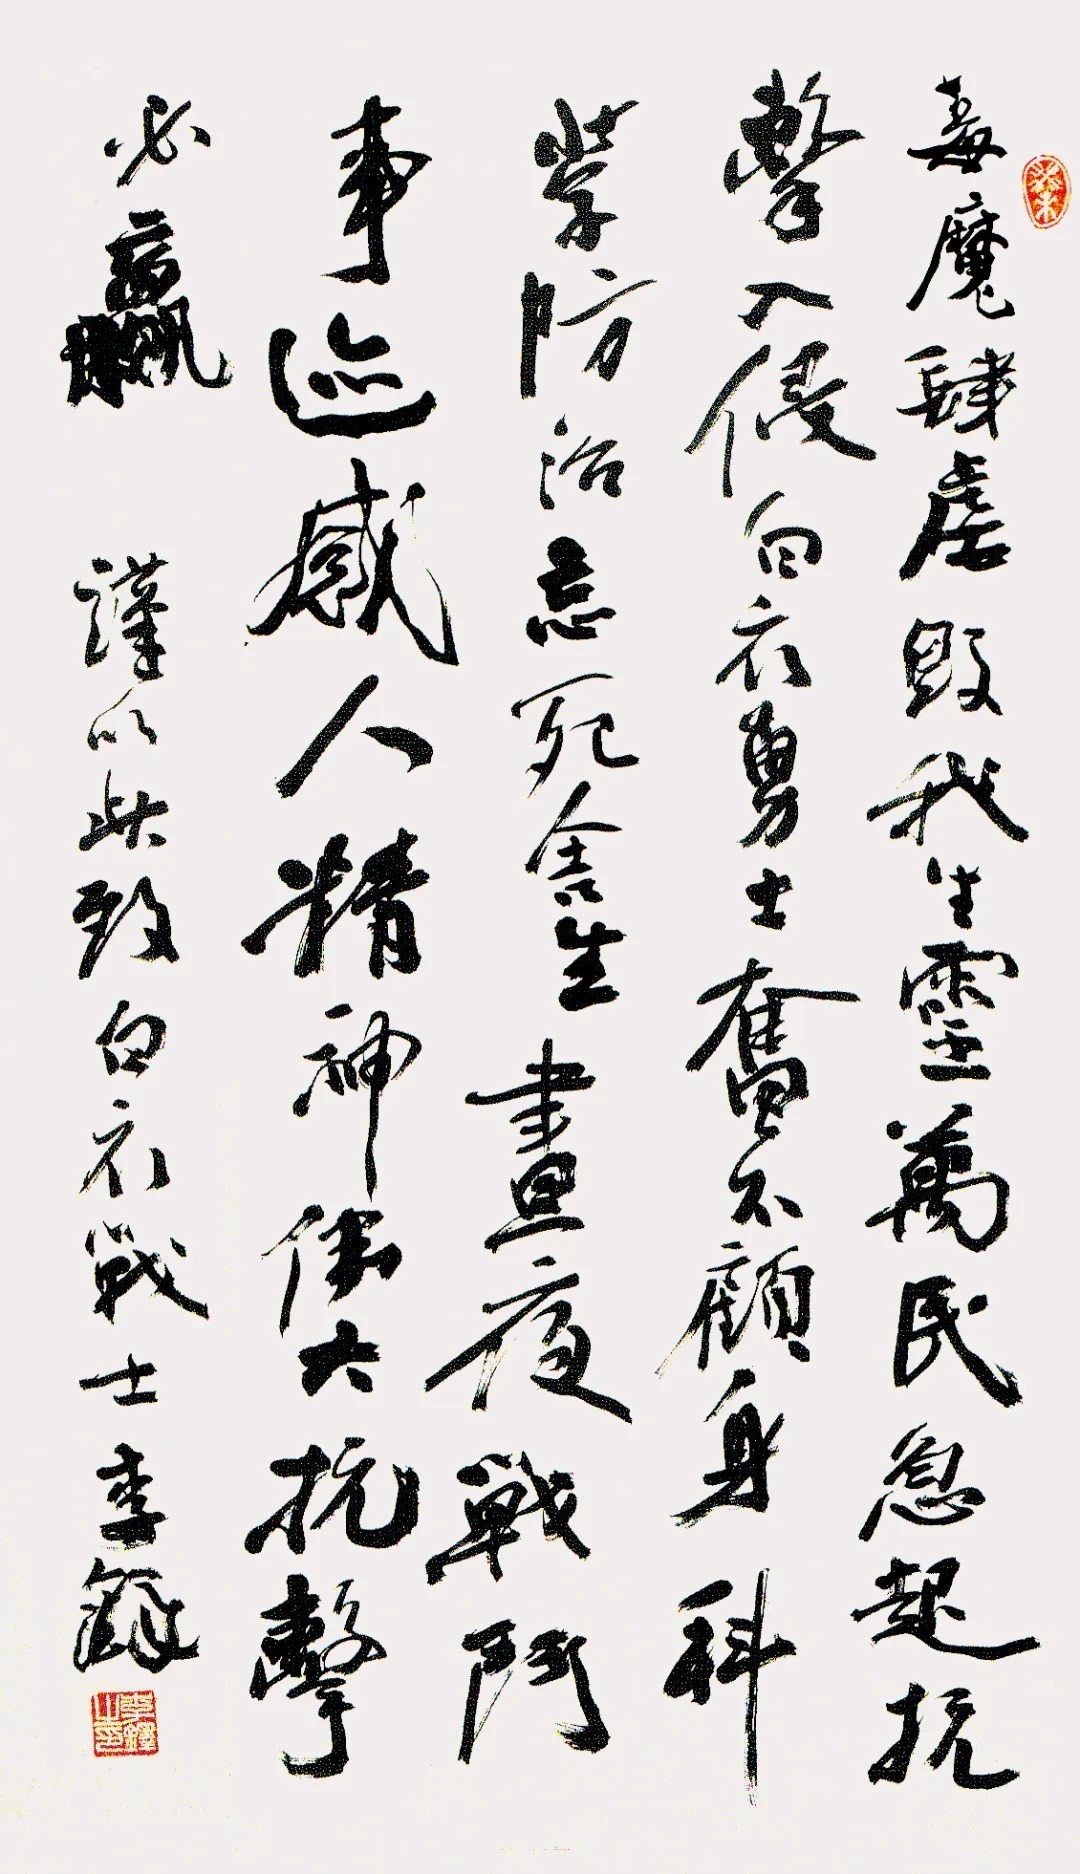 毒魔肆虐毁我生靈萬民急起抗
擊入侵白衣勇士奮不顧身科
學防治忘死舍生晝夜戰鬥
事迹感人精神偉大抗擊
必贏 謹以此致白衣戰士李鐸